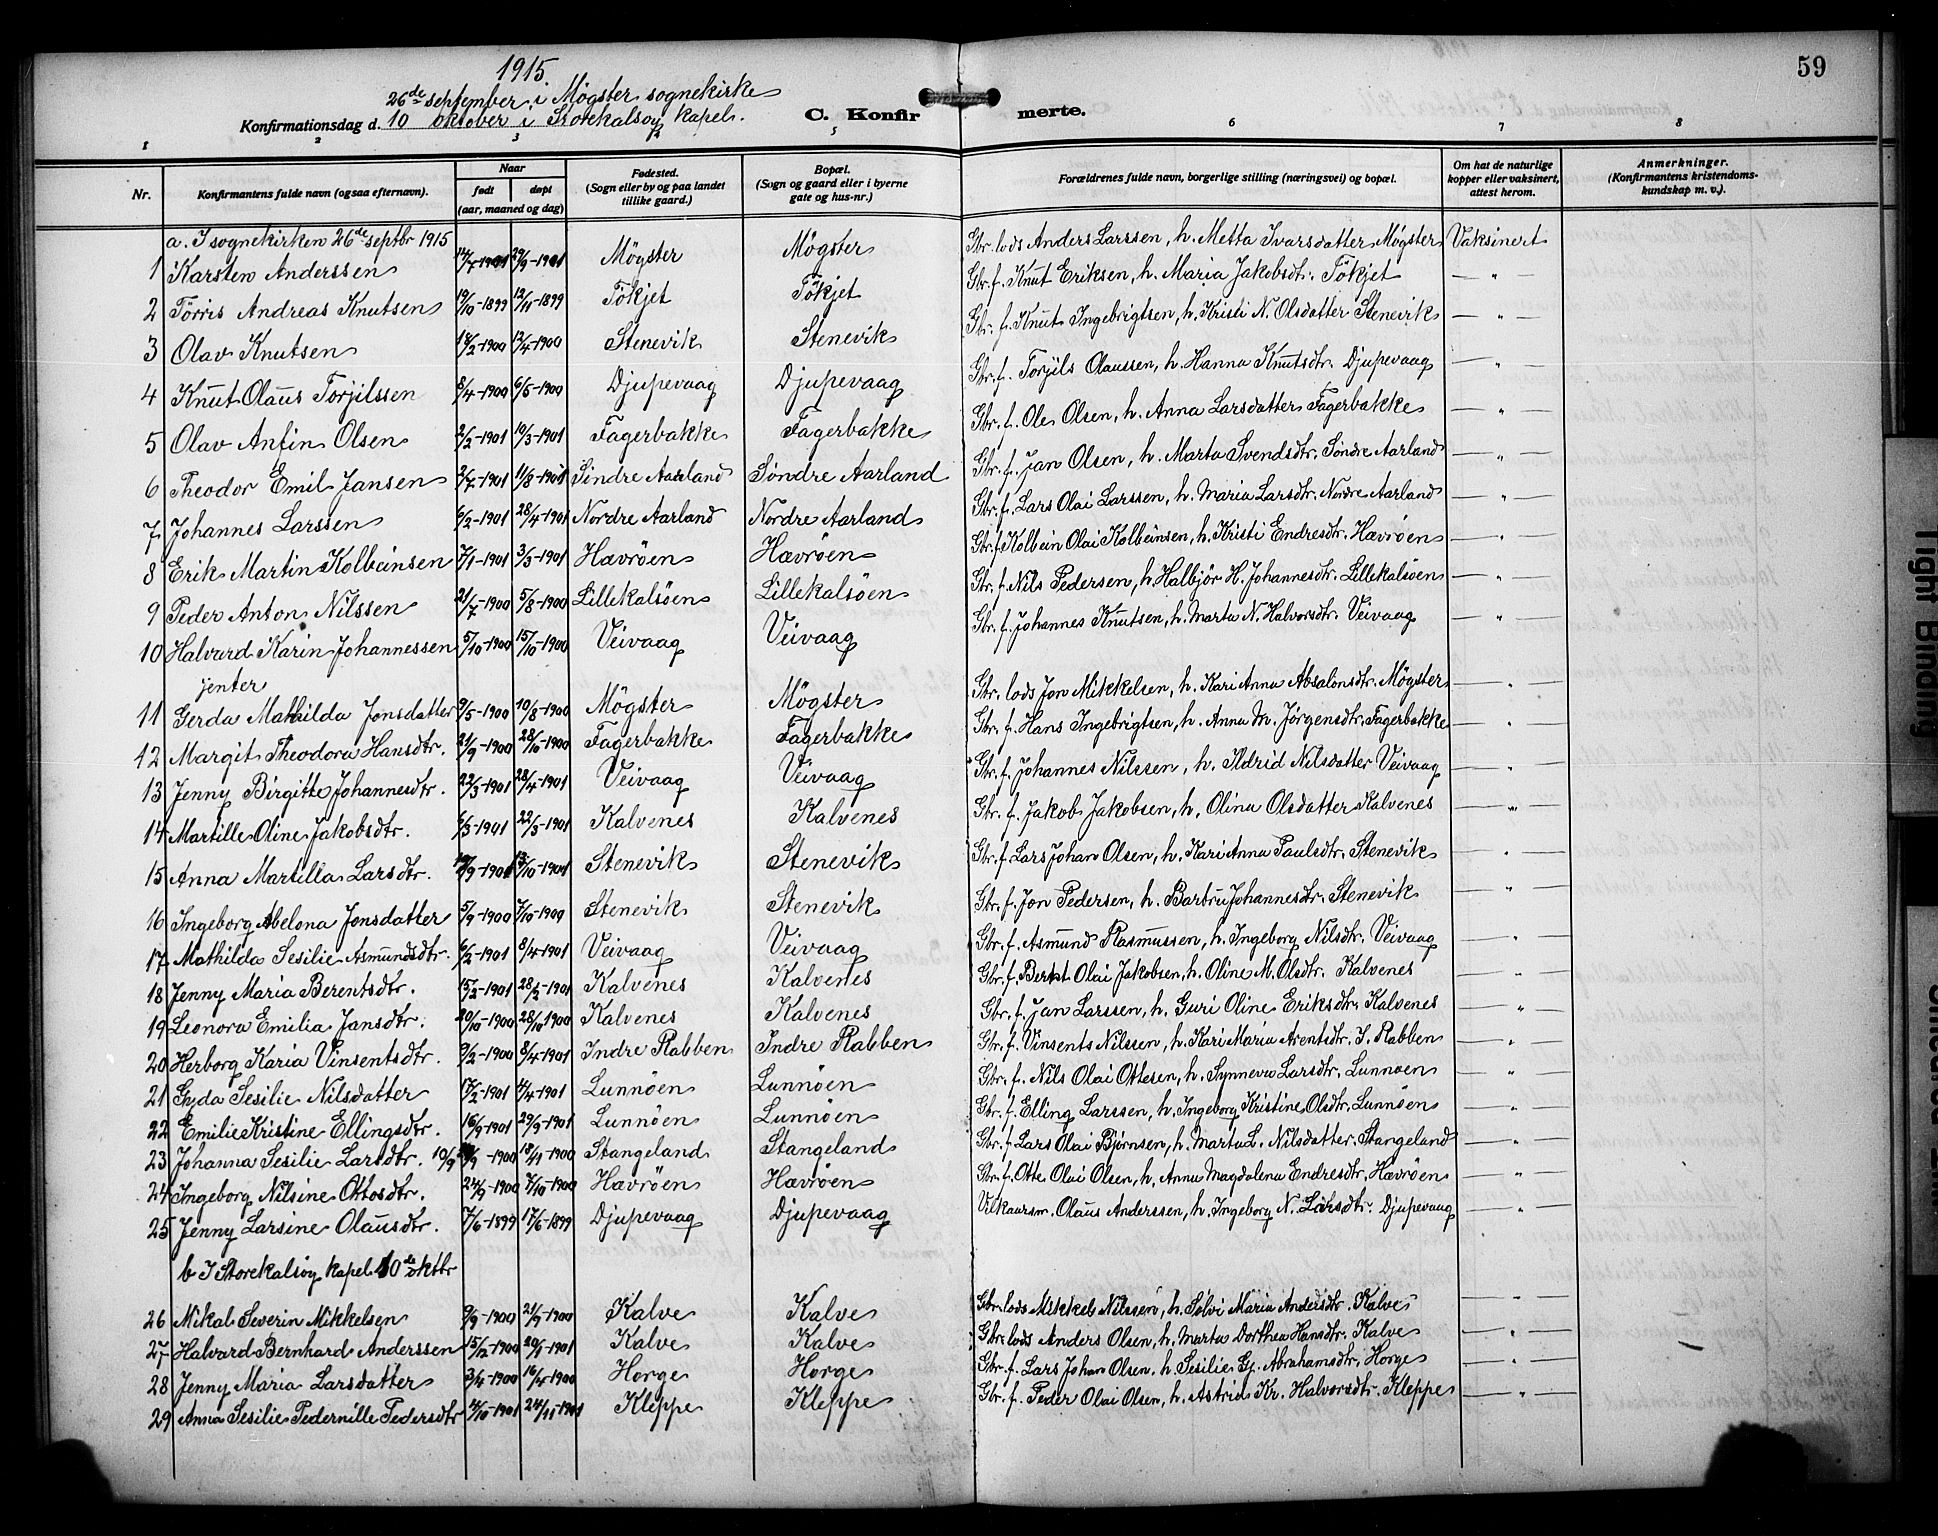 59
1915
26de september i Møgster sognekirke
Konfirmationsdag d. 10 oktober i Storekalsøy kapel.
C. Konfirmerte.
1 2 3 4 5 6 7 8
Nr. Konfirmantens fulde navn (ogsaa efternavn). Naar født døpt (aar, maaned og dag) Fødested. (Sogn eller by og paa landet tillike gaard.) Bopæl. (Sogn og gaard eller i byerne gate og hus-nr.) Forældrenes fulde navn, borgerlige stilling (næringsvei) og bopæl. Om hat de naturlige kopper eller vaksinert, attest herom. Anmerkninger. (Konfirmantens kristendomskundskap m. v.).
a. I sognekirken 26de septbr 1915
1 Karsten Anderssen 14/7-1901 29/9-1901 Møgster Møgster Gbr. lods Anders Larssen, h. Metta Ivarsdatter Møgster Vaksinert
2 Tørris Andreas Knutsen 19/10-1899 12/11-1899 Tökjet Tökjet Gbr. f. Knut Eriksen, h. Maria Jakobsdtr. Tökjet — " —
3 Olav Knutsen 1900 1900 Stenevik Stenevik Gbr. f. Knut Ingebrigtsen, h. Kristi N. Olsdatter Stenevik — " —
4 Knut Olaus Torjilssen 8/4-1900 6/5-1900 Djupevaag Djupevaag Gbr. f. Torjils Olaussen, h. Hanna Knutsdtr. Djupevaag — " —
5 Olav Anfin Olsen 2/2-1901 19/3-1901 Fagerbakke Fagerbakke Gbr. f. Ole Olsen, h. Anna Larsdatter Fagerbakke — " —
6 Theodor Emil Jansen 2/7-1901 11/8-1901 Søndre Aarland Søndre Aarland Gbr. f. Jan Olsen, h. Marta Svendsdtr. Søndre Aarland — " —
7 Johannes Larssen 6/2-1901 28/4-1901 Nordre Aarland Nordre Aarland Gbr. f. Lars Olai Larssen, h. Maria Larsdtr. Nordre Aarland — " —
8 Erik Martin Kolbeinsen 7/1-1901 3/3-1901 Hævröen Hævröen Gbr. f. Kolbein Olai Kolbeinsen, h. Kristi Endresdtr. Hævröen — " —
9 Peder Anton Nilssen 21/7-1900 5/8-1900 Lillekalsöen Lillekalsöen Gbr. f. Nils Pedersen, h. Halbjör H. Johannesdtr. Lillekalsöen — " —
10 Halvard Karin Johannessen 5/10-1900 15/10-1900 Veivaag Veivaag Gbr. f. Johannes Knutsen, h. Marta N. Halvorsdtr. Veivaag — " —
jenter
11 Gerda Mathilda Jonsdatter 9/5-1900 10/8-1900 Møgster Møgster Gbr. lods Jon Mikkelsen, h. Kari Anna Absalonsdtr. Møgster — " —
12 Margit Theodora Hansdtr. 21/9-1900 28/10-1900 Fagerbakke Fagerbakke Gbr. f. Hans Ingebrigtsen, h. Anna M. Jörgensdtr. Fagerbakke — " —
13 Jenny Birgitte Johannesdtr. 22/3-1901 28/4-1901 Veivaag Veivaag Gbr. f. Johannes Nilssen, h. Ildrid Nilsdatter Veivaag — " —
14 Martille Oline Jakobsdtr. 6/3-1901 22/3-1901 Kalvenes Kalvenes Gbr. f. Jakob Jakobsen, h. Olina Olsdatter Kalvenes — " —
15 Anna Martilla Larsdtr. Stenevik Stenevik Gbr. f. Lars Johan Olsen, h. Kari Anna Paulsdtr. Stenevik — " —
16 Ingeborg Abelona Jonsdatter 5/9-1900 7/10-1900 Stenevik Stenevik Gbr. f. Jon Pedersen, h. Bartru Johannesdtr. Stenevik — " —
17 Mathilda Sesilie Asmundsdtr. 6/2-1901 8/4-1901 Veivaag Veivaag Gbr. f. Asmund Rasmussen, h. Ingeborg Nilsdtr. Veivaag — " —
18 Jenny Maria Berentsdtr. 15/2-1901 28/2-1901 Kalvenes Kalvenes Gbr. f. Olai Jakobsen, h. Oline M. Olsdtr. Kalvenes — " —
19 Leonora Emilia Jansdtr. 20/10-1900 28/10-1900 Kalvenes Kalvenes Gbr. f. Jan Larssen, h. Guri Oline Eriksdtr. Kalvenes — " —
20 Herborg Karia Vinsentsdtr. 9/2-1900 8/4-1901 Indre Rabben Indre Rabben Gbr. f. Vinsents Nilssen, h. Kari Maria Arentsdtr. I. Rabben — " —
21 Gyda Sesilie Nilsdatter 17/2-1901 4/4-1901 Lunnöen Lunnöen Gbr. f. Nils Olai Ottesen, h. Synneva Larsdtr. Lunnøen — " —
22 Emilie Kristine Ellingsdtr. 16/9-1901 29/9-1901 Lunnöen Lunnöen Gbr. f. Elling Larssen, h. Ingeborg Kristine Olsdtr. Lunnöen — " —
23 Johanna Sesilie Larsdtr. 10/9 -1900 18/11-1900 Stangeland Stangeland Gbr. f. Lars Olai Bjørnsen, h. Marta L. Nilsdatter. Stangeland — " —
24 Ingeborg Nilsine Ottosdtr. 24/9-1900 7/10-1900 Hævröen Hævröen Gbr. f. Otte Olai Olsen, h. Anna Magdalena Endresdtr. Hævröen — " —
25 Jenny Larsine Olausdtr. 7/6-1899 17/6-1899 Djupevaag Djupevaag Vilkaarsm. Olaus Anderssen, h. Ingeborg N. Larsdtr. Djupevaag — " —
b I Storekalsøy kapel 10de oktbr
26 Nikal Severin Mikkelsen 9/9-1900 21/9-1900 Kalve Kalve Gbr. lods Mikkel Nilssen, h. Sølvi Maria Andersdtr. Kalve — " —
27 Halvard Bernhard Anderssen 15/12-1900 20/1-1901 Kalve Kalve Gbr. lods Anders Olsen, h. Marta Dorthea Hansdtr. Kalve — " —
28 Jenny Maria Larsdatter 3/4-1900 16/4-1900 Horge Horge Gbr. f. Lars Johan Olsen. h. Sesilie Gj. Abrahamsdtr. Horge — " —
29 Anna Sesilie Pedernille Pedersdtr 4/10-1901 24/11-1901 Kleppe Kleppe Gbr. f. Peder Olai Olsen, h. Astrid Kr. Halvorsdtr. Kleppe — " —
Tight Binding